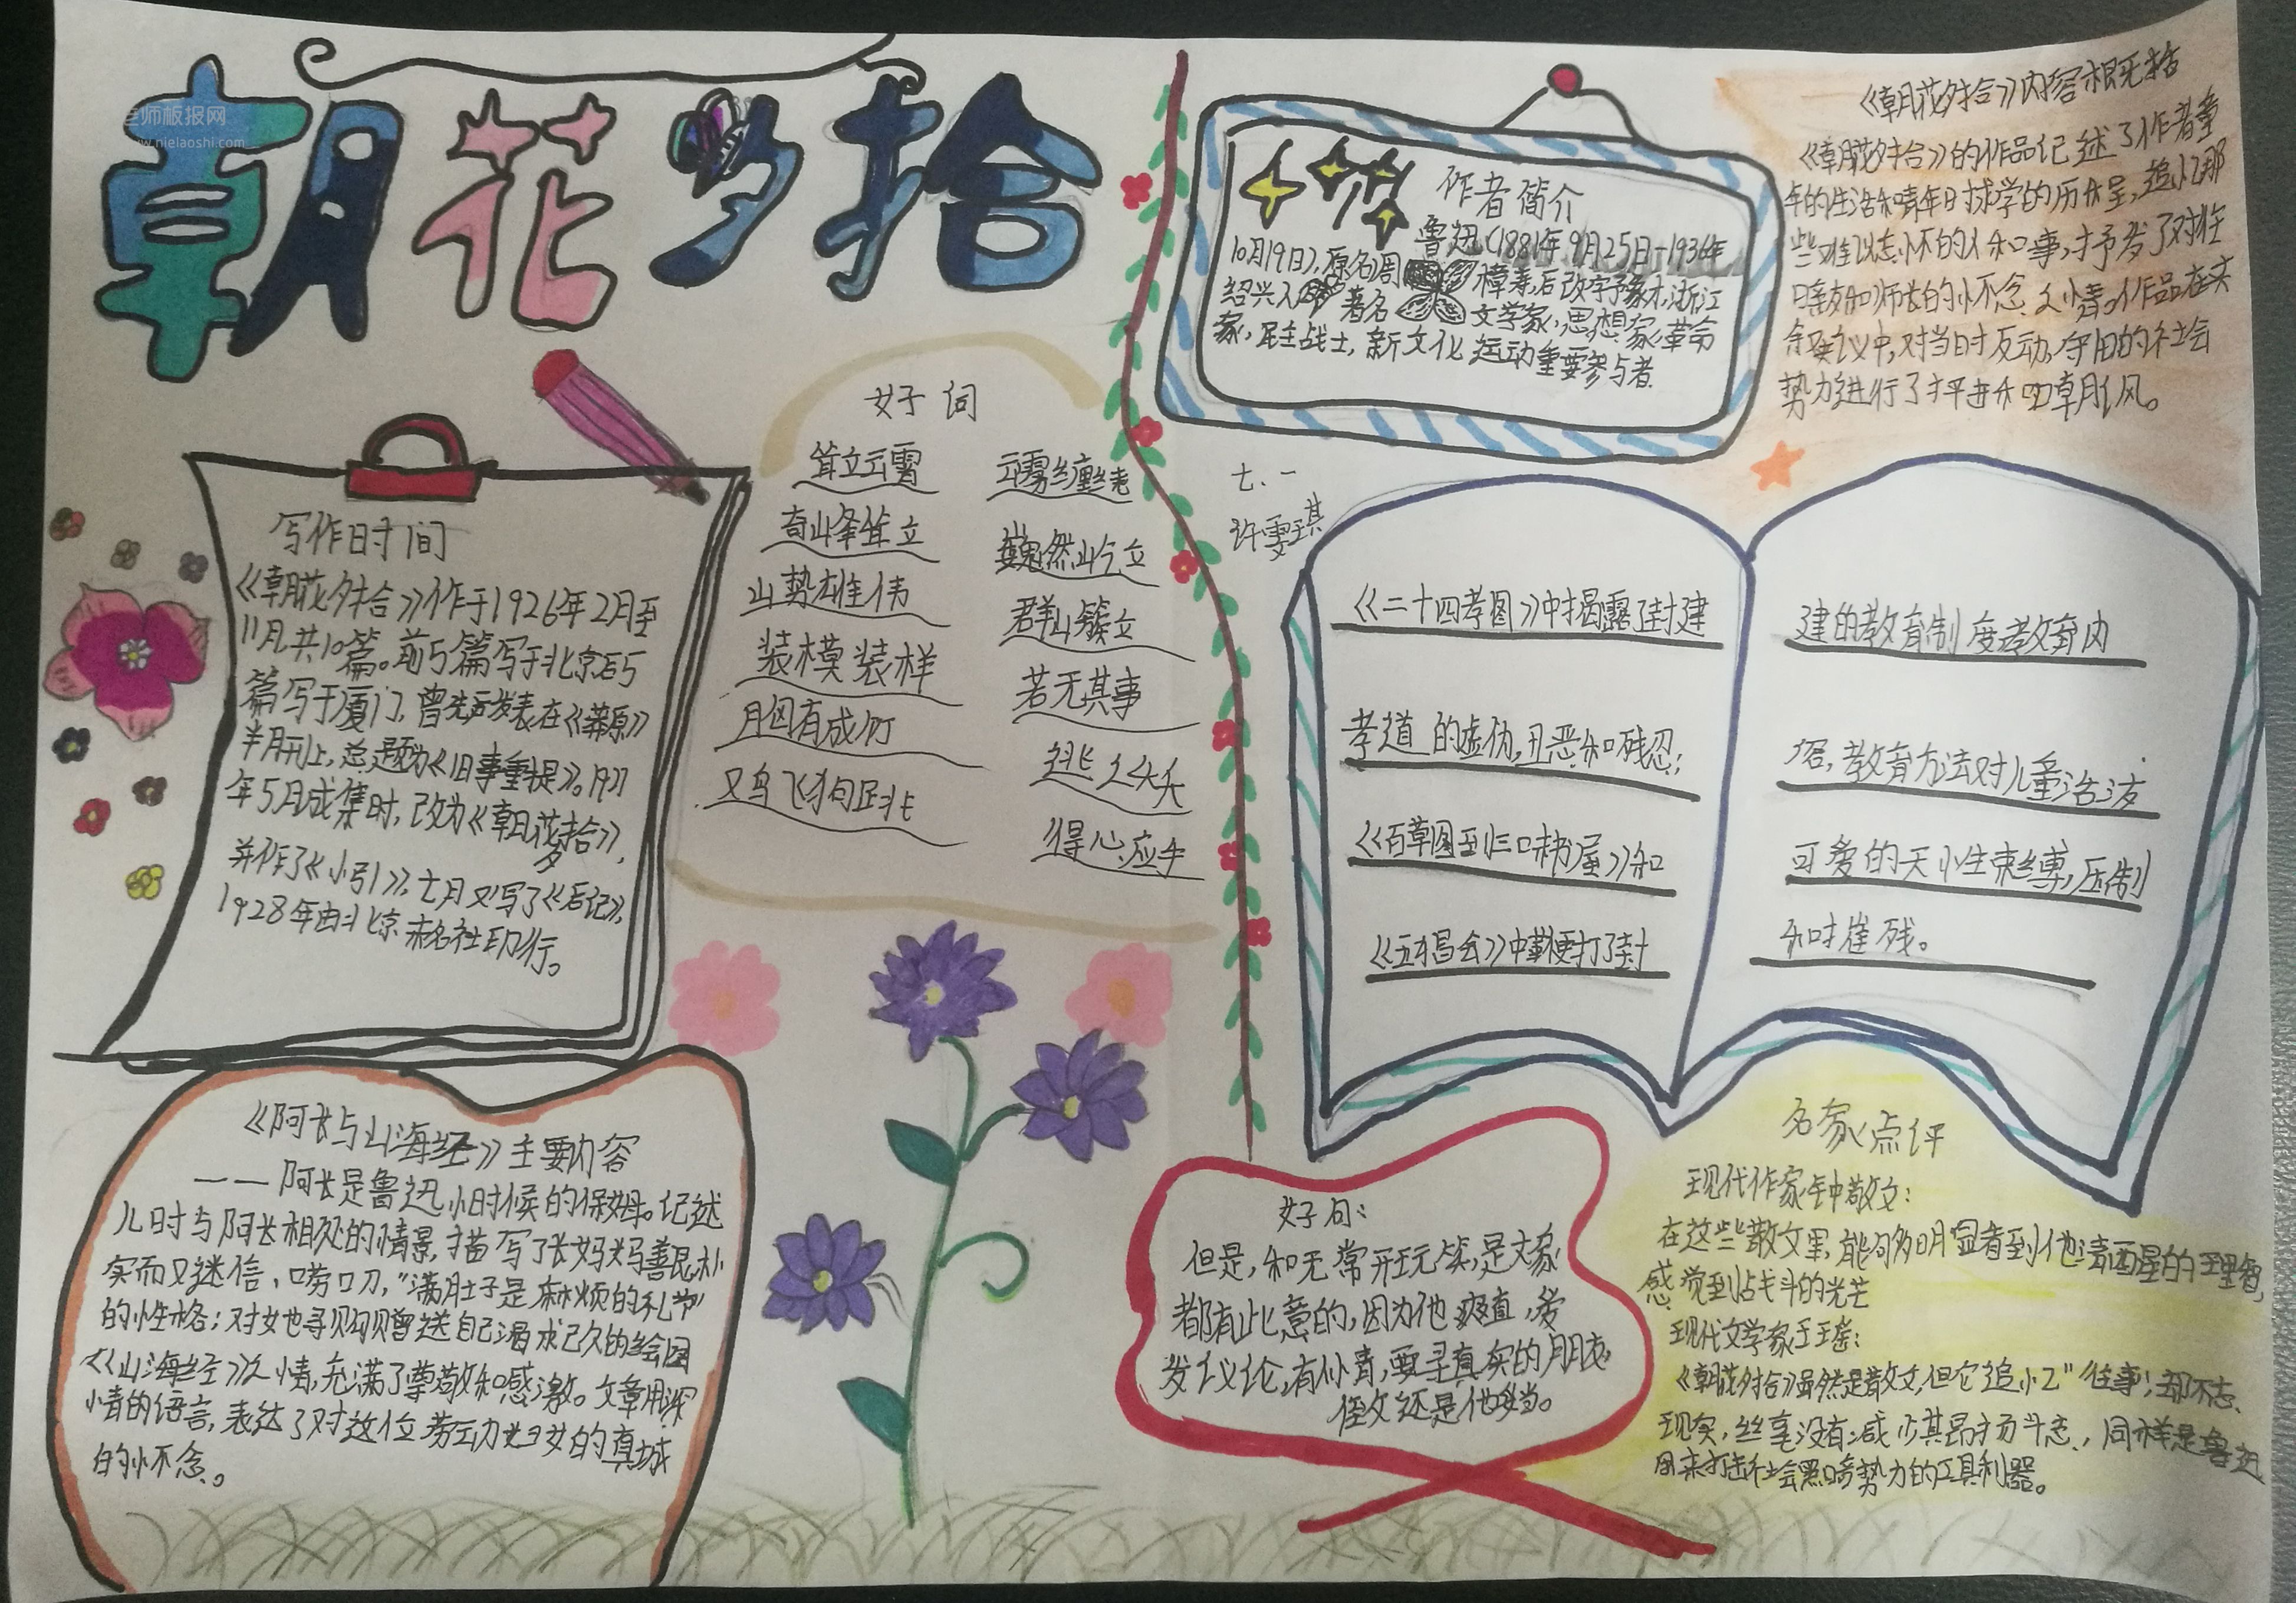 朝花夕拾
老师板报网
www.njelaoshi.com
写作时间
《朝花夕拾》作于1926年2月至
11月,共10篇。前5篇写于北京后5
篇写于厦门,曾先后发表在《莽原》
半月刊上,总题为《旧事重提》。1927
年5月成集时,改为《朝花夕拾》,
并作了《小引》,七月又写了《后记》,
1928年由北京未名社印行。
好词
耸立云霄
奇峰耸立
山势雄伟
装模装样
胸有成竹
鸡飞狗跳
云雾缠绕
巍然屹立
群山簇立
若无其事
逃之夭夭
得心应手
《阿长与山海经》主要内容
——阿长是鲁迅小时候的保姆。记述
儿时与阿长相处的情景,描写了长妈妈善良朴
实而又迷信、唠叨,"满肚子是麻烦的礼节"
的性格;对她寻购赠送自己渴求已久的绘图
《山海经》之情,充满了尊敬和感激。文章用深
情的语言,表达了对这位劳动妇女的真诚
的怀念。
作者简介
鲁迅(1881年9月25日-1936年
10月19日),原名周樟寿,后改字豫才,浙江
绍兴人。著名文学家,思想家,革命
家,民主战士,新文化运动重要参与者.
《朝花夕拾》内容概括
《朝花夕拾》的作品记述了作者童
年的生活和青年时求学的历程,追忆那
些难以忘怀的人和事,抒发了对往
日亲友和师长的怀念之情。作品在夹
叙夹议中,对当时反动,守旧的社会
势力进行了抨击和嘲讽。
七.一
许雯琪
《二十四孝图》中揭露了封建
孝道的虚伪,丑恶和残忍;
《百草园到三味书屋》和
《五猖会》中鞭打了封
建的教育制度教育内
容,教育方法对儿童活泼
可爱的天性束缚,压制
和摧残。
好句:
但是,和无常开玩笑,是大家
都有此意的,因为他爽直,爱
发议论,有人情,要寻真实的朋友
倒还是他妥当。
名家点评
现代作家钟敬文:
在这些散文里,能够明显看到他清醒的理智,
感觉到战斗的光芒
现代文学家王瑶:
《朝花夕拾》虽然是散文,但它追忆"往事",却不忘
现实,丝毫没有减少其昂扬斗志,同样是鲁迅
用来打击社会黑暗势力的工具利器。